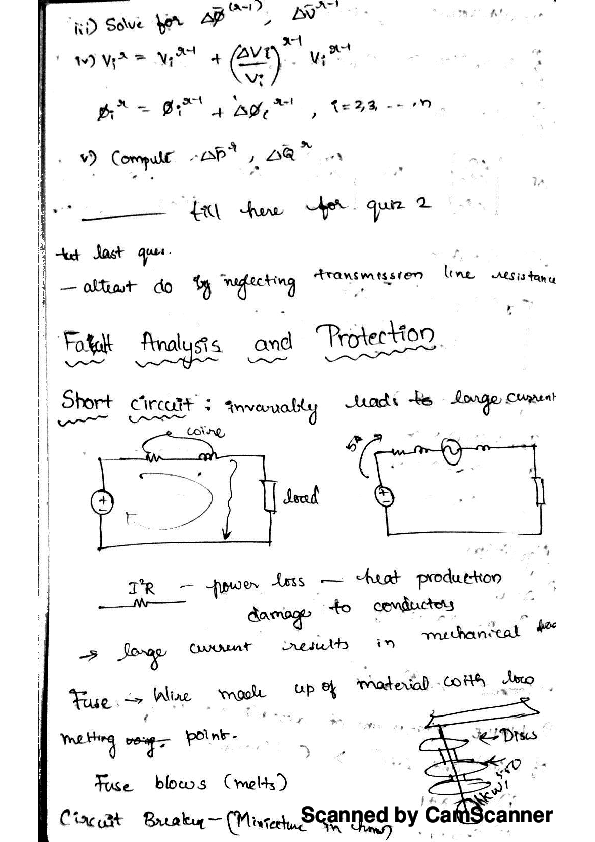 iii) Solve for Δø̄^(r-1), ΔV̄^r-1
iv) Vi^r = Vi^r-1 + (ΔVi/Vi)^r-1 Vi^r-1
øi^r = øi^r-1 + Δøi^r-1, i=2,3, ---, n
v) Compute ΔP̄^r, ΔQ̄^r
till here for quiz 2
last ques.
- atleast do by neglecting transmission line resistance
Fault Analysis and Protection
Short circuit : invariably leads to large current
wire
5A
load
I²R - power loss - heat production
damage to conductors
→ large current results in mechanical
Fuse → Wire made up of material with low
melting point.
← Discs
Fuse blows (melts)
Circuit Breaker - (Miniature in home)
Scanned by CamScanner